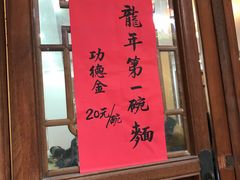 龍年第一碗麵
功德金
20元/碗